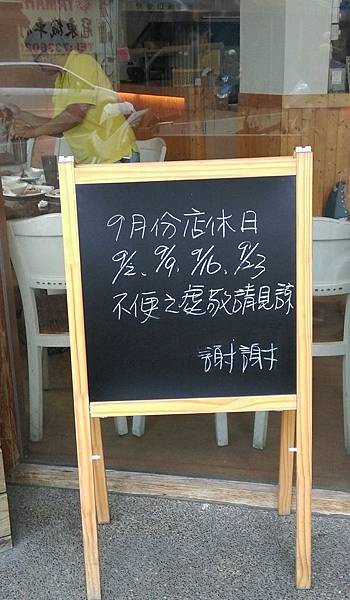 冠東檢車
TEL:733602
9月份店休日
9/2、9/9、9/16、9/23
不便之處敬請見諒
謝謝